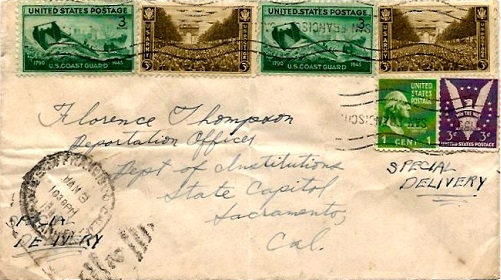 UNITED STATES POSTAGE
3
1790 1945
U.S. COAST GUARD
ARMY
3
3
UNITED STATES POSTAGE
3
1790 1945
U.S. COAST GUARD
ARMY
3
3
SAN FRANCISC
UNITED STATES POSTAGE
1 CENT 1
WIN THE WAR
3¢ 3¢
UNITED STATES POSTAGE
SAN FRANCISCO
Florence Thompson
Deportation Officer
Dept of Institutions
State Capitol
Sacramento,
Cal.
SPECIAL
DELIVERY
SPECIAL
DELIVERY